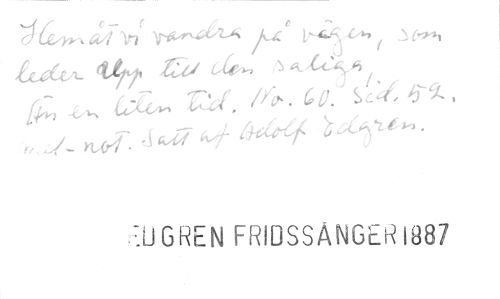 Hemåt vi vandra på vägen, som
leder upp till den saliga,
Än en liten tid. No. 60. Sid. 52.
med-not. Satt af Adolf Edgren.
EDGREN FRIDSSÅNGER 1887